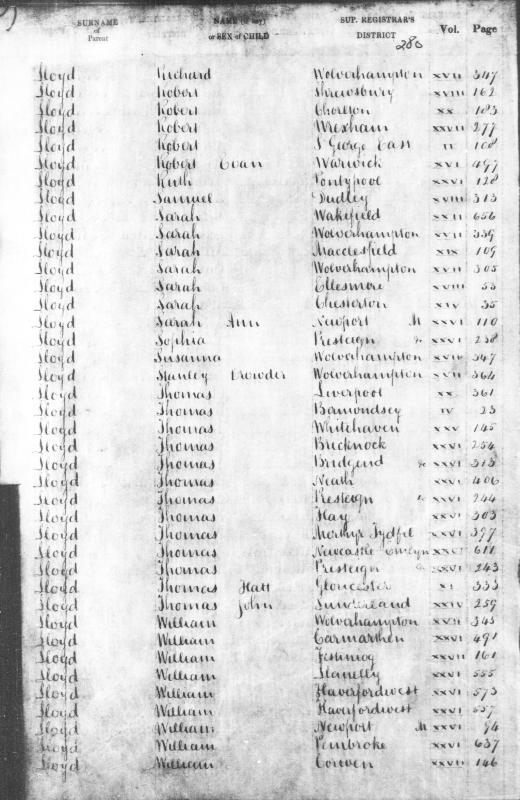 SURNAME of Parent NAME (if any) or SEX of CHILD SUP. REGISTRAR'S DISTRICT Vol. Page
280
Lloyd Richard Wolverhampton XVII 347
Lloyd Robert Shrewsbury XVIII 162
Lloyd Robert Chorlton XX 183
Lloyd Robert Wrexham XXVII 277
Lloyd Robert St George East II 108
Lloyd Robert Evan Warwick XVI 497
Lloyd Ruth Pontypool XXVI 128
Lloyd Samuel Dudley XVIII 313
Lloyd Sarah Wakefield XXII 656
Lloyd Sarah Wolverhampton XVII 339
Lloyd Sarah Macclesfield XIX 109
Lloyd Sarah Wolverhampton XVII 305
Lloyd Sarah Ellesmere XVIII 53
Lloyd Sarah Chesterton XIV 35
Lloyd Sarah Ann Newport M XXVI 110
Lloyd Sophia Presteign XXVI 238
Lloyd Susanna Wolverhampton XVII 347
Lloyd Stanley Crowder Wolverhampton XVII 364
Lloyd Thomas Liverpool XX 361
Lloyd Thomas Bermondsey IV 23
Lloyd Thomas Whitehaven XXV 145
Lloyd Thomas Brecknock XXVI 254
Lloyd Thomas Bridgend &c XXVI 313
Lloyd Thomas Neath XXVI 406
Lloyd Thomas Presteign &c XXVI 244
Lloyd Thomas Hay XXVI 303
Lloyd Thomas Merthyr Tydfil XXVI 397
Lloyd Thomas Newcastle Emlyn XXVI 611
Lloyd Thomas Presteign XXVI 243
Lloyd Thomas Hatt Gloucester XI 333
Lloyd Thomas John Sunderland XXIV 259
Lloyd William Wolverhampton XVII 345
Lloyd William Carmarthen XXVI 491
Lloyd William Festiniog XXVII 161
Lloyd William Llanelly XXVI 555
Lloyd William Haverfordwest XXVI 573
Lloyd William Haverfordwest XXVI 557
Lloyd William Newport M XXVI 94
Lloyd William Pembroke XXVI 637
Lloyd William Corwen XXVII 146